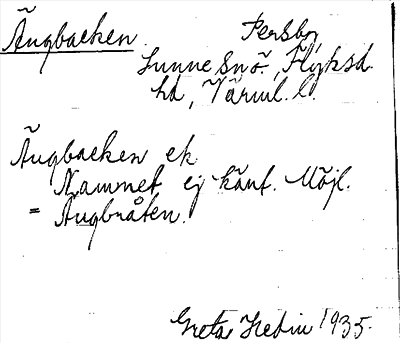 Ängbacken Persby
Sunne Snö. Flyksd.
hd, Värml. l.
Ängbacken ek
Namnet ej känt. Möjl.
= Ängbråten.
Greta Hedin 1935.